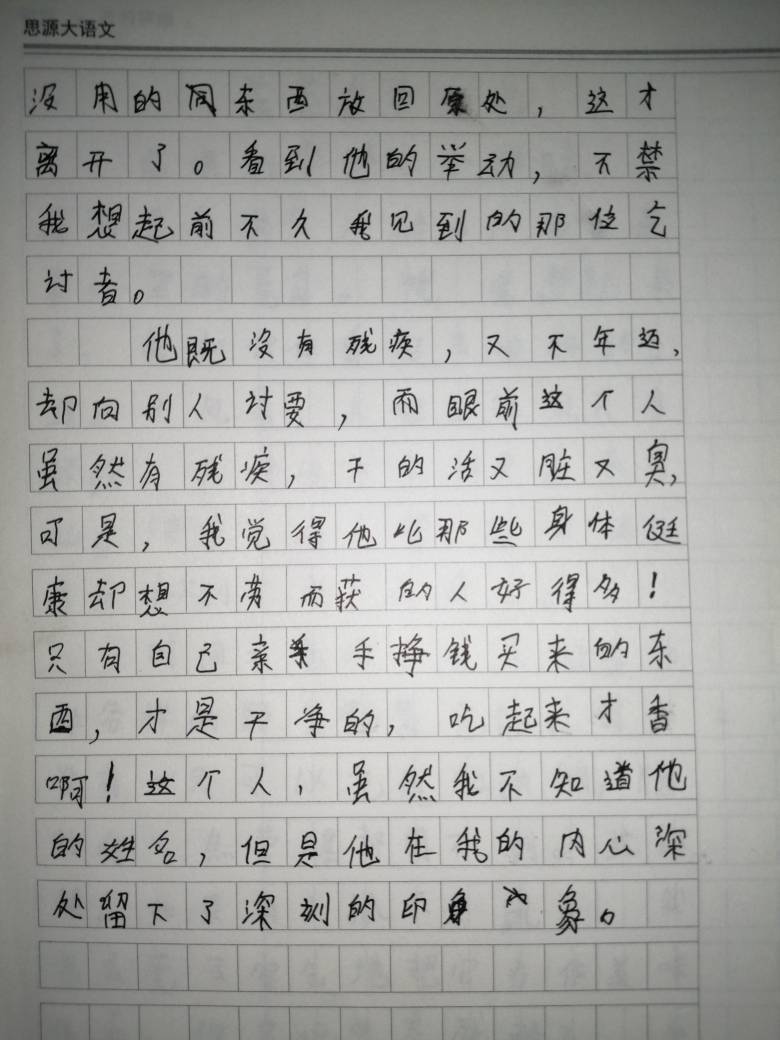 思源大语文
没用的东西放回原处，这才
离开了。看到他的举动，不禁
我想起前不久我见到的那位乞
讨者。
他既没有残疾，又不年迈，
却向别人讨要，而眼前这个人
虽然有残疾，干的活又脏又臭，
可是，我觉得他比那些身体健
康却想不劳而获的人好得多！
只有自己亲手挣钱买来的东
西，才是干净的，吃起来才香
啊！这个人，虽然我不知道他
的姓名，但是他在我的内心深
处留下了深刻的印象。